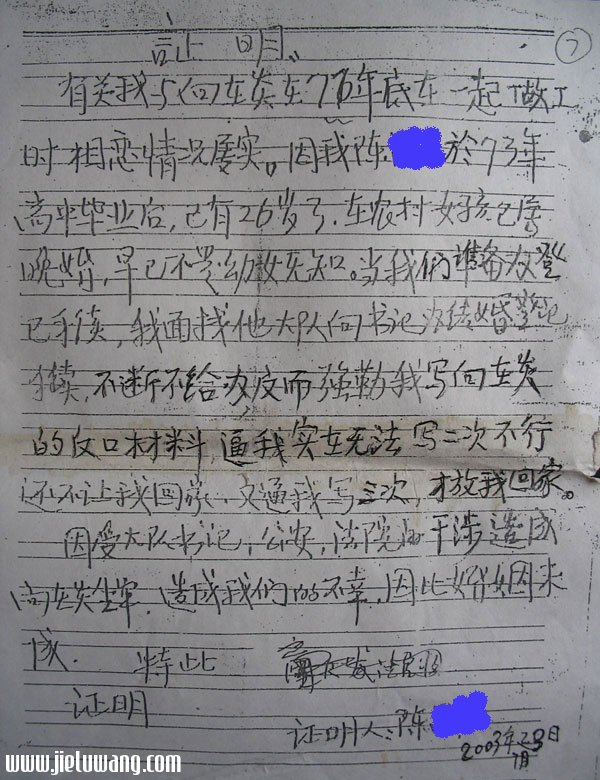 证明
7
有关我与向在炎在76年底在一起做工
时相恋情况属实。因我陈 於73年
高中毕业后,已有26岁了.在农村女孩已属
晚婚,早已不是幼女无知。当我们准备办登
记手续,我面找他大队向书记办结婚登记
手续,不断不给办反而强勒我写向在炎
的反口材料,逼我实在无法写二次不行
还不让我回家.又逼我写三次,才放我回家。
因受大队书记,公安,法院的干涉造成
向在炎坐牢.造成我们的不幸,因此婚姻未
成. 特此
证明
证明人:陈
2003年 日
www.jieluwang.com